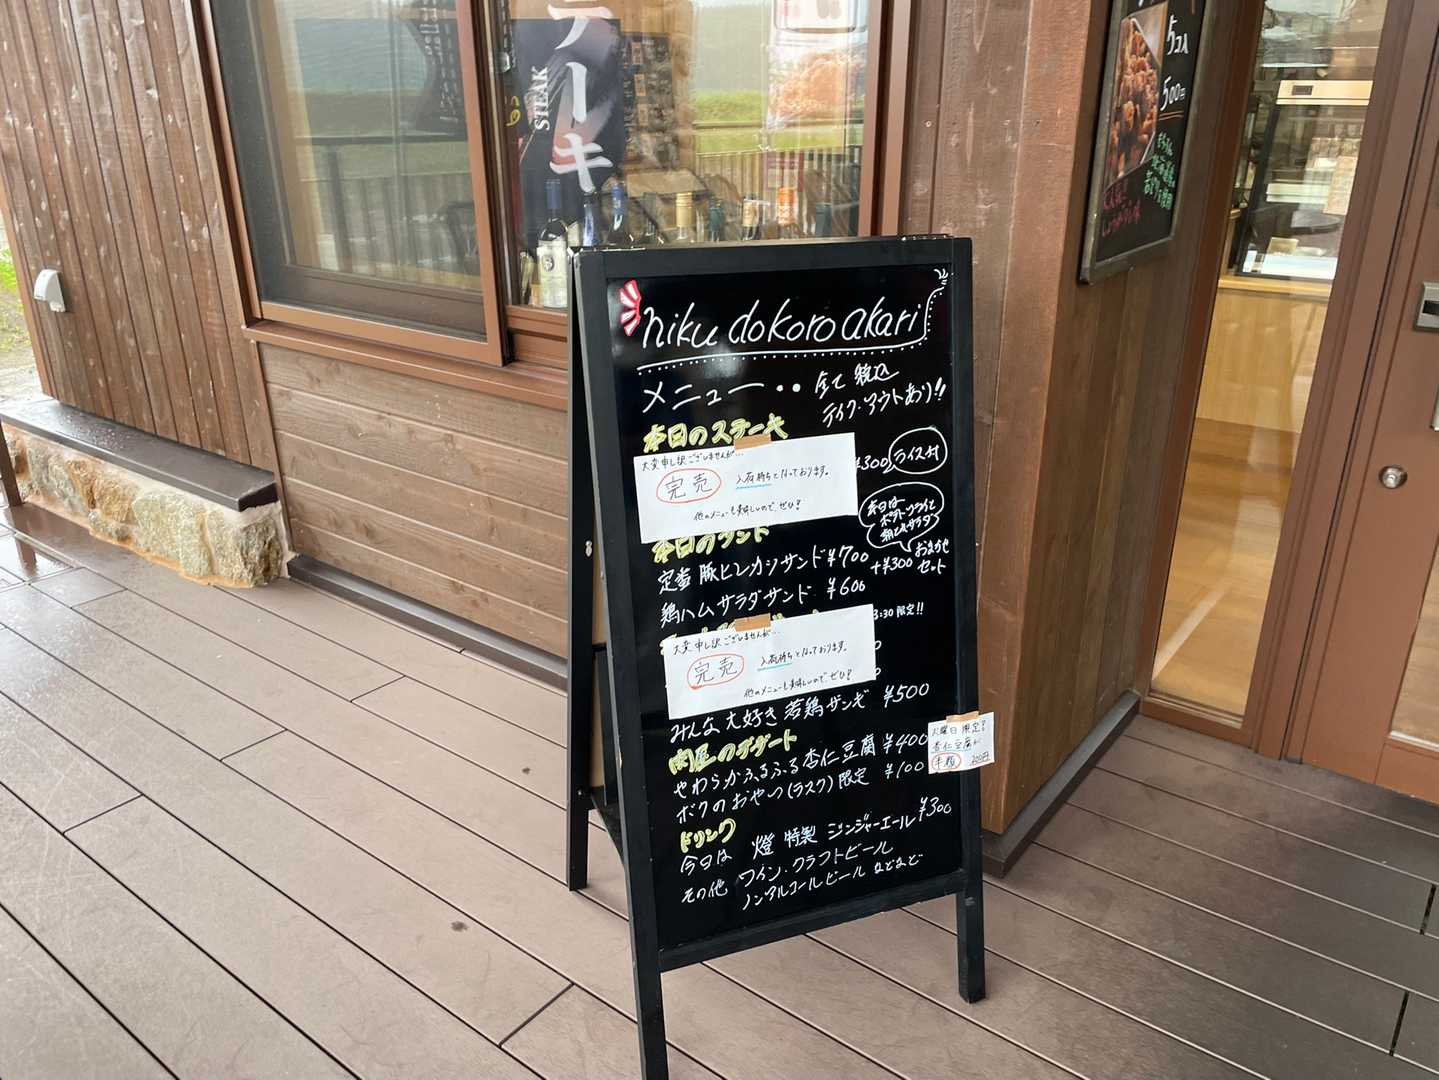 テーキ
STEAK
5コ入
500円
niku dokoro akari
メニュー・・全て税込
テイク・アウトあり!!
本日のステーキ
大変申し訳ございませんが…
完売 入荷待ちとなっております。
他のメニューも美味しいので、ぜひ!
¥300 ライス付
本日は
ポテト
サラダ
本日のサンド
定番豚ヒレカツサンド ¥700
+¥300 おまかせセット
鶏ハムサラダサンド ¥600
3:30限定!!
大変申し訳ございませんが…
完売 入荷待ちとなっております。
他のメニューも美味しいので、ぜひ!
みんな大好き若鶏ザンギ ¥500
肉屋のデザート
やわらかふるふる杏仁豆腐 ¥400
火曜日限定?
杏仁豆腐が
半額 200円
ボクのおやつ(ラスク)限定 ¥100
ドリンク
今日は 燈 特製 ジンジャーエール ¥300
その他 ワイン・クラフトビール
ノンアルコールビール などなど